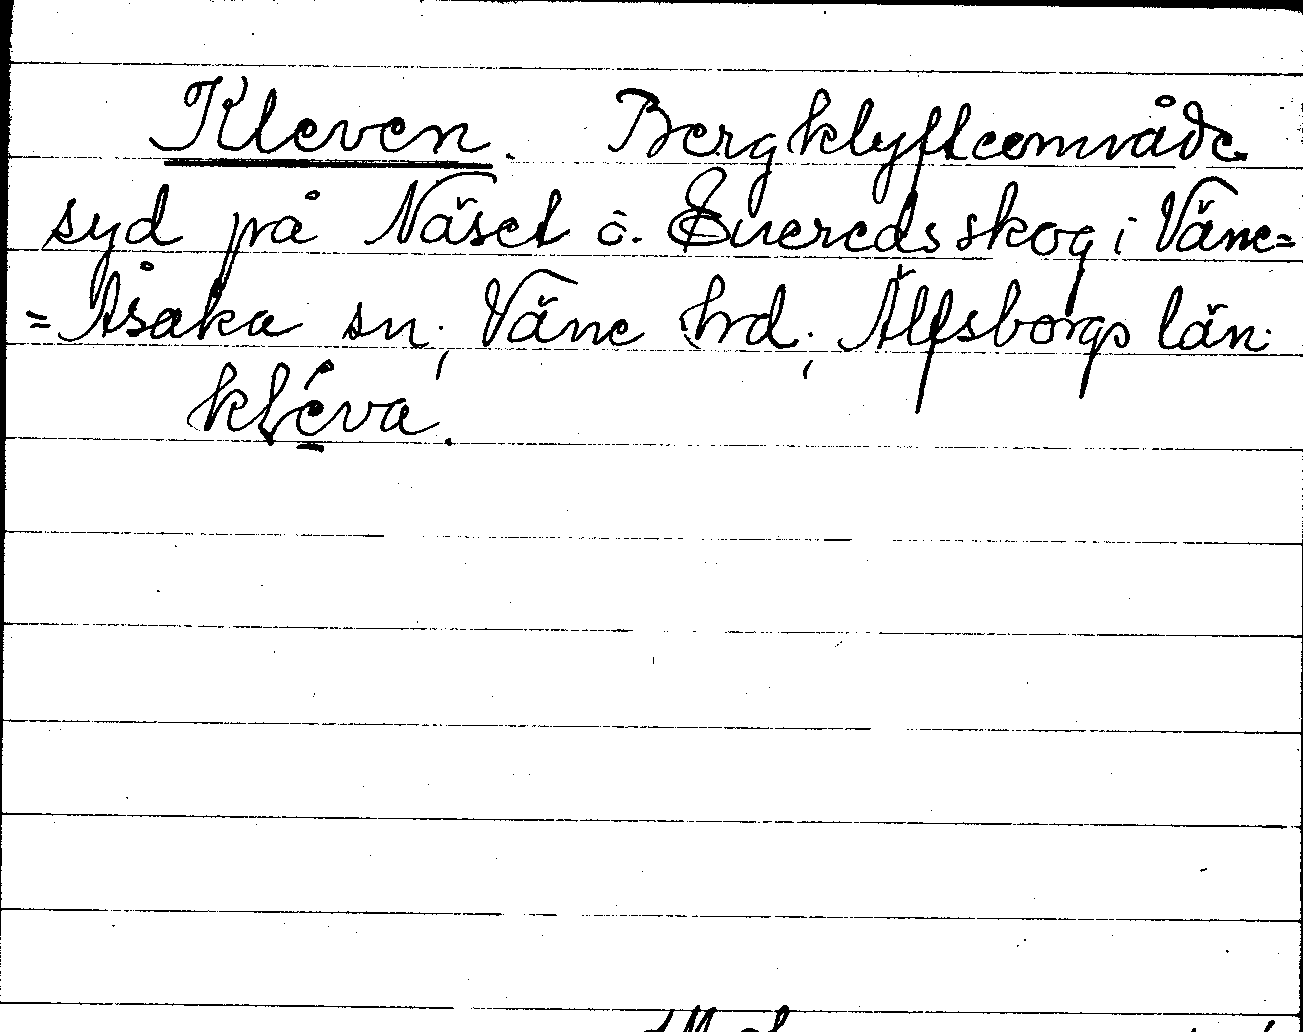 Kleven. Bergklyfteområde
syd på Näset ö. Sueredsskog i Väne=
=Åsaka sn; Väne hrd; Älfsborgs län.
kléva.